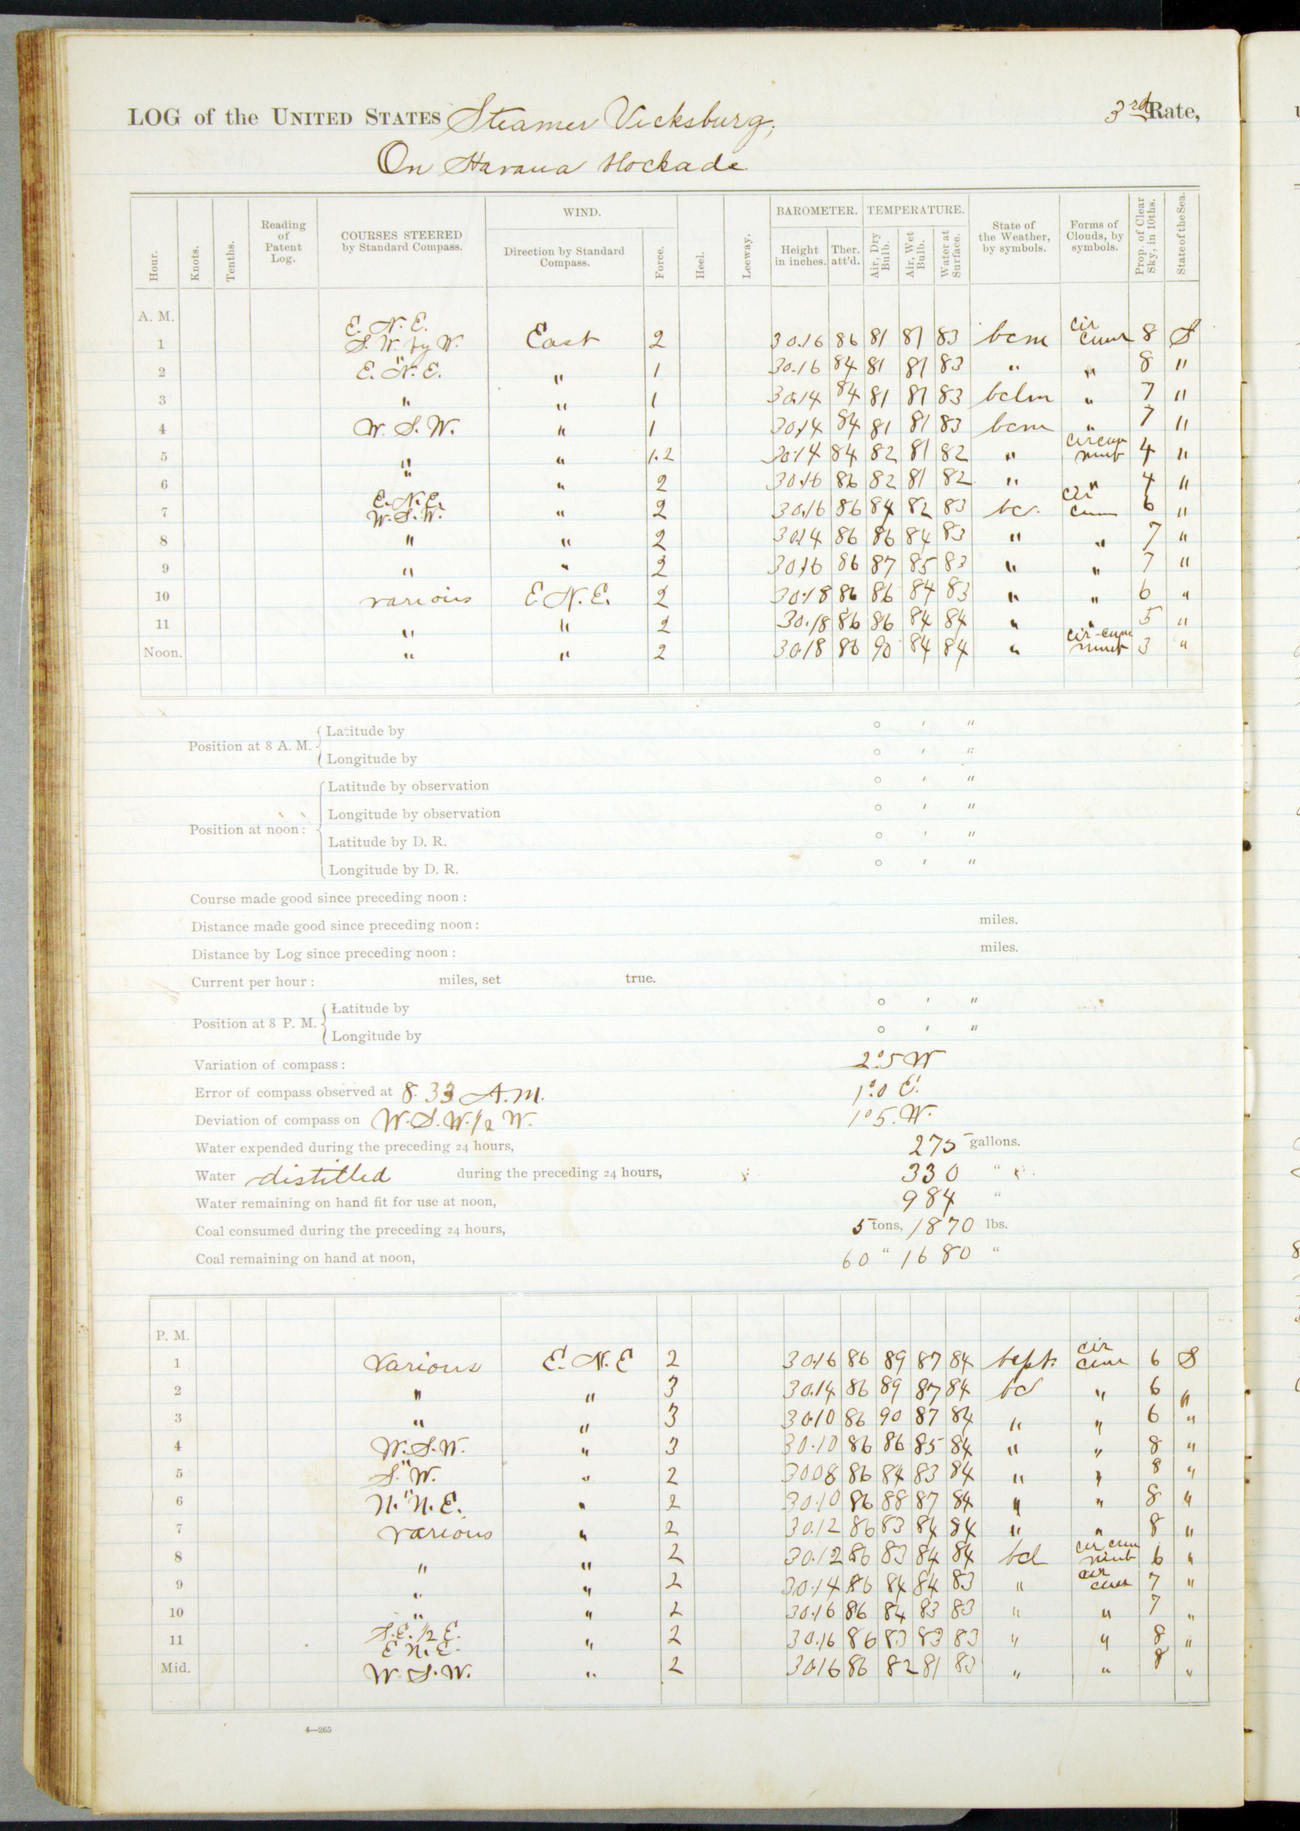 LOG of the UNITED STATES Steamer Vicksburg, 3rd Rate,
On Havana blockade
Hour. Knots. Tenths. Reading of Patent Log. COURSES STEERED by Standard Compass. WIND. Direction by Standard Compass. Force. Heel. Leeway. BAROMETER. Height in inches. Ther. att'd. TEMPERATURE. Air, Dry Bulb. Air, Wet Bulb. Water at Surface. State of the Weather, by symbols. Forms of Clouds, by symbols. Prop. of Clear Sky, in 10ths. State of the Sea.
A. M.
1 E. N. E. S. W. by W. East 2 30.16 86 81 81 83 bcm cir cum 8 S
2 " E. N. E. " 1 30.16 84 81 81 83 " " 8 "
3 " " 1 30.14 84 81 81 83 bclm " 7 "
4 W. S. W. " 1 30.14 84 81 81 83 bcm " 7 "
5 " " 1.2 30.14 84 82 81 82 " cir cum nimb 4 "
6 " " 2 30.16 86 82 81 82 " " 4 "
7 E. N. E. W. S. W. " 2 30.16 86 84 82 83 bc. cir cum 6 "
8 " " 2 30.14 86 86 84 83 " " 7 "
9 " " 2 30.16 86 87 85 83 " " 7 "
10 various E. N. E. 2 30.18 86 86 84 83 " " 6 "
11 " " 2 30.18 86 86 84 84 " " 5 "
Noon. " " 2 30.18 86 90 84 84 " cir-cum nimb 3 "
Position at 8 A. M. Latitude by ° ′ ″
Longitude by ° ′ ″
Latitude by observation ° ′ ″
Longitude by observation ° ′ ″
Position at noon:
Latitude by D. R. ° ′ ″
Longitude by D. R. ° ′ ″
Course made good since preceding noon:
Distance made good since preceding noon: miles.
Distance by Log since preceding noon: miles.
Current per hour: miles, set true.
Position at 8 P. M. Latitude by ° ′ ″
Longitude by ° ′ ″
Variation of compass: 2°.5 W
Error of compass observed at 8.33 A.M. 1°.0 E.
Deviation of compass on W.S.W.1/2 W. 1°5. W.
Water expended during the preceding 24 hours, 275 gallons.
Water distilled during the preceding 24 hours, 330 "
Water remaining on hand fit for use at noon, 984 "
Coal consumed during the preceding 24 hours, 5 tons, 1870 lbs.
Coal remaining on hand at noon, 60 " 1680 "
P. M.
1 Various E. N. E 2 30.16 86 89 87 84 cir cum 6 S
2 " " 3 30.14 86 89 87 84 bc " 6 "
3 " " 3 30.10 86 90 87 84 " " 6 "
4 W. S. W. " 3 30.10 86 86 85 84 " " 8 "
5 " S. W. " 2 30.08 86 84 83 84 " " 8 "
6 " N. N. E. " 2 30.10 86 88 87 84 " " 8 "
7 various " 2 30.12 86 83 84 84 " " 8 "
8 " " 2 30.12 86 83 84 84 bcl cir cum nimb 6 "
9 " " 2 30.14 86 84 84 83 " cir cum 7 "
10 " " 2 30.16 86 84 83 83 " " 7 "
11 S. E. 1/2 E. E. N. E. " 2 30.16 86 83 83 83 " " 8 "
Mid. W. S. W. " 2 30.16 86 82 81 83 " " 8 "
4—265